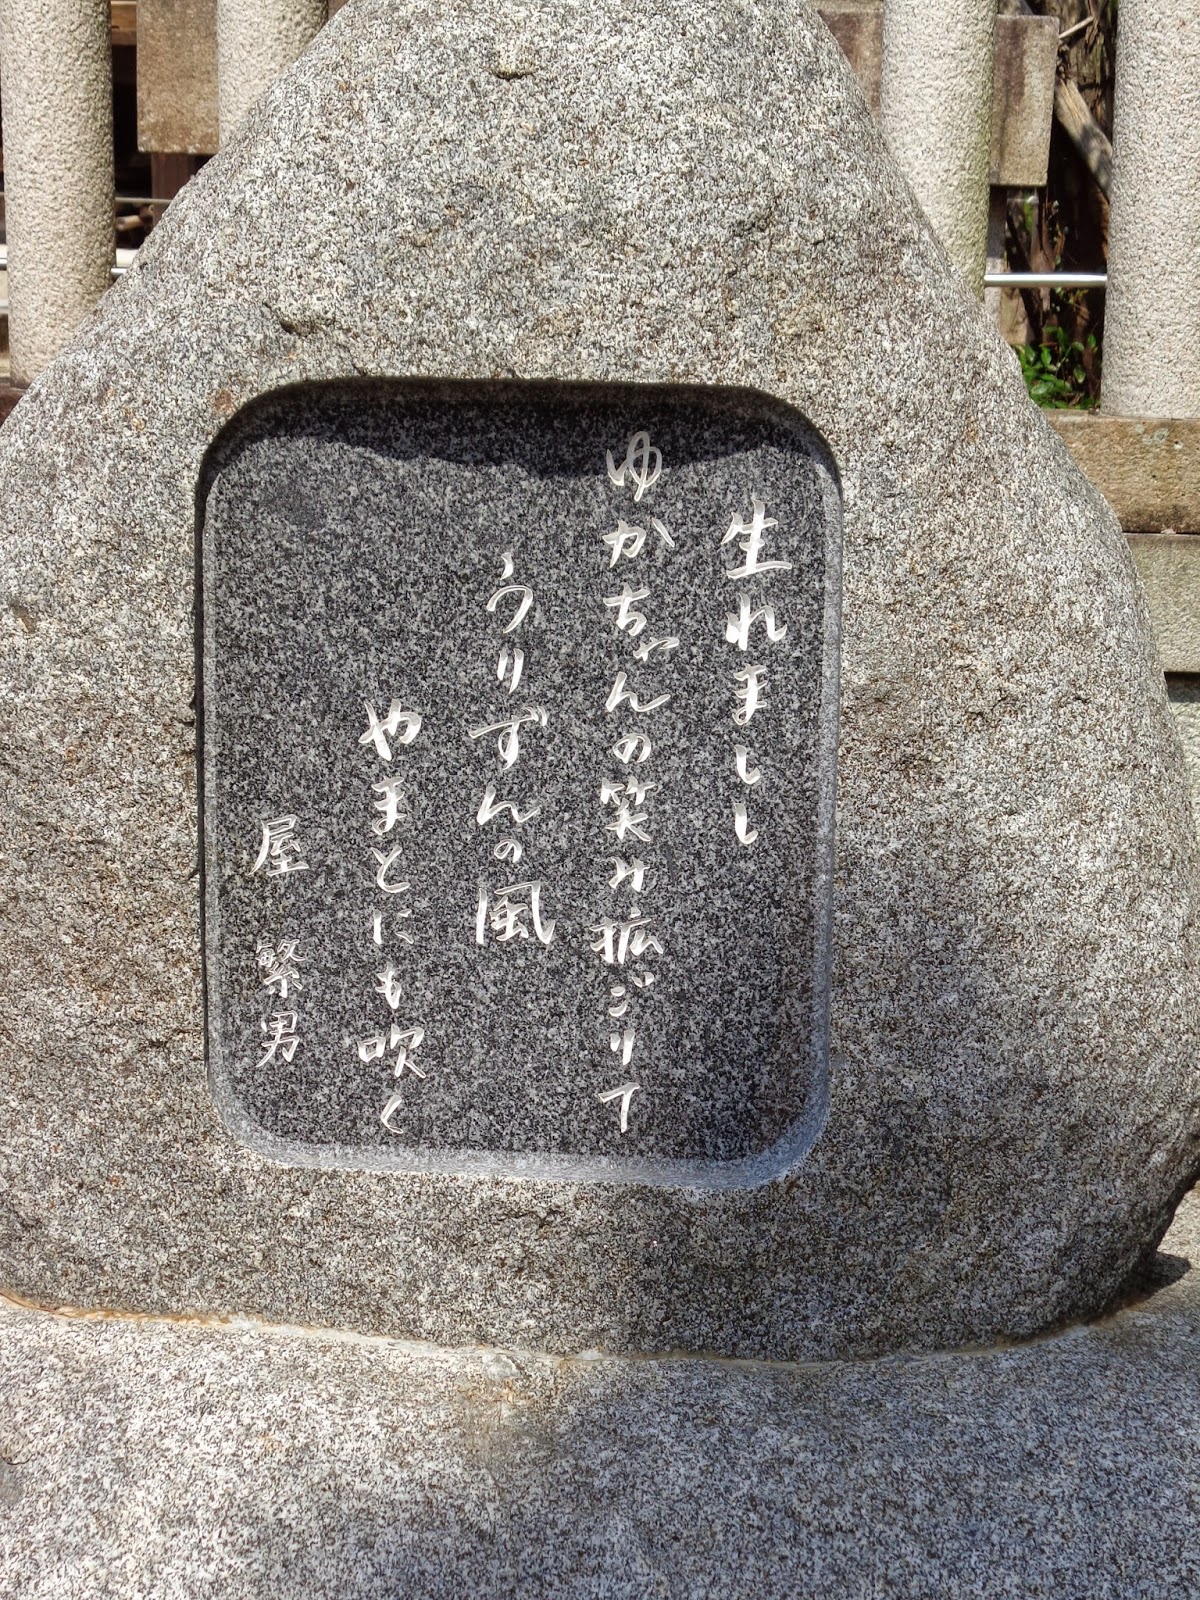 生れましし
ゆかちゃんの笑み拡ごりて
うりずんの風
やまとにも吹く
屋 繁男